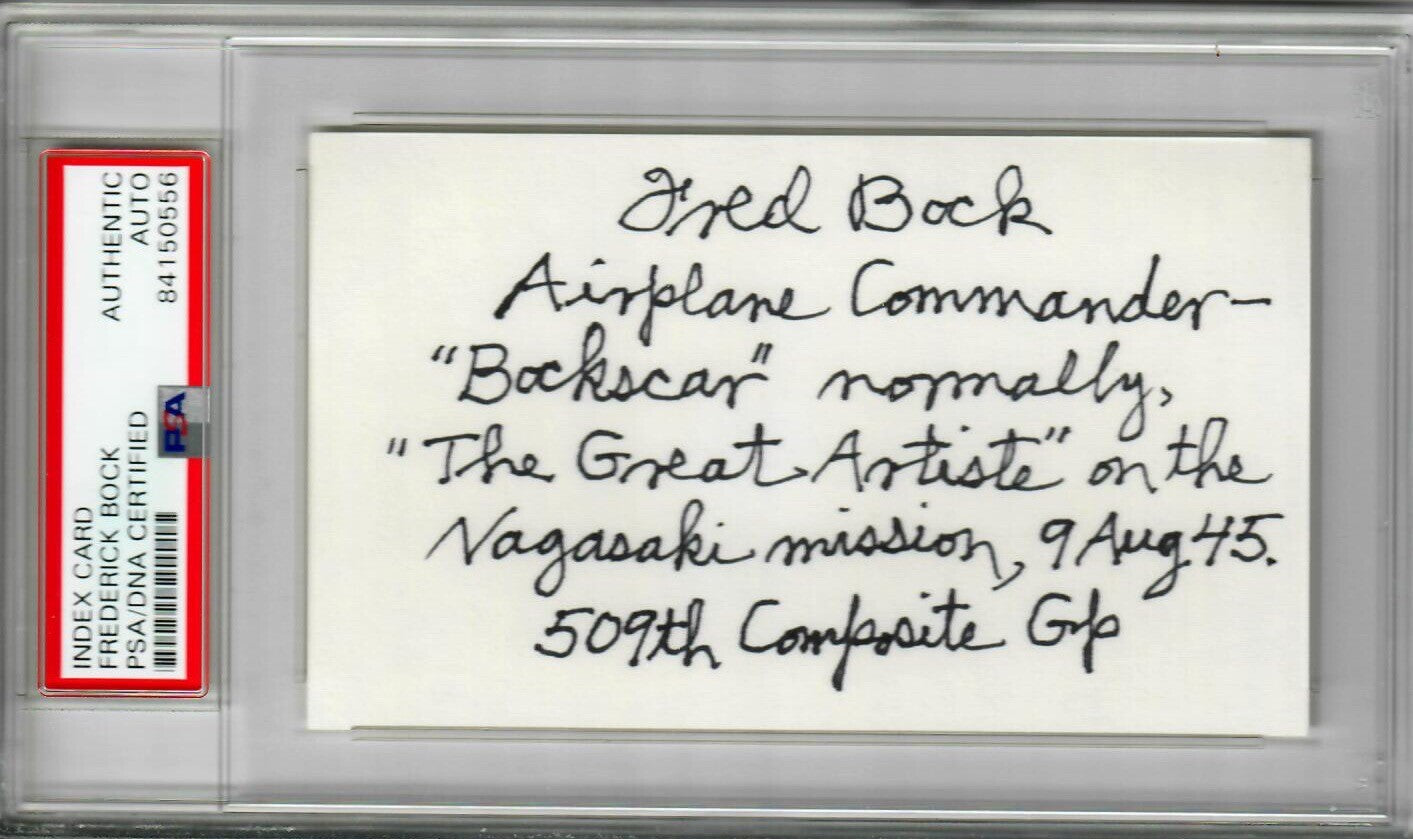 INDEX CARD
FREDERICK BOCK
PSA/DNA CERTIFIED
AUTHENTIC
AUTO
84150556
PSA
Fred Bock
Airplane Commander—
"Bockscar" normally,
"The Great Artiste" on the
Nagasaki mission, 9 Aug 45.
509th Composite Grp